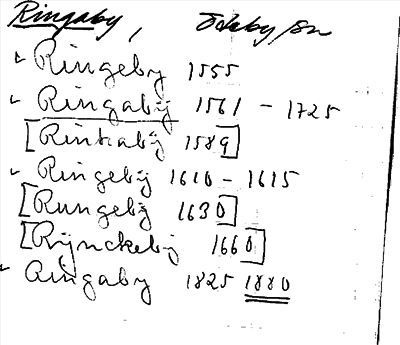 Ringaby, Ödeby sn
Ringeby 1555
Ringaby 1561 - 1725
[Rinkaby 1589]
Ringeby 1610 - 1615
[Rungeby 1630]
[Rÿnckebÿ 1660]
Ringaby 1825 1880